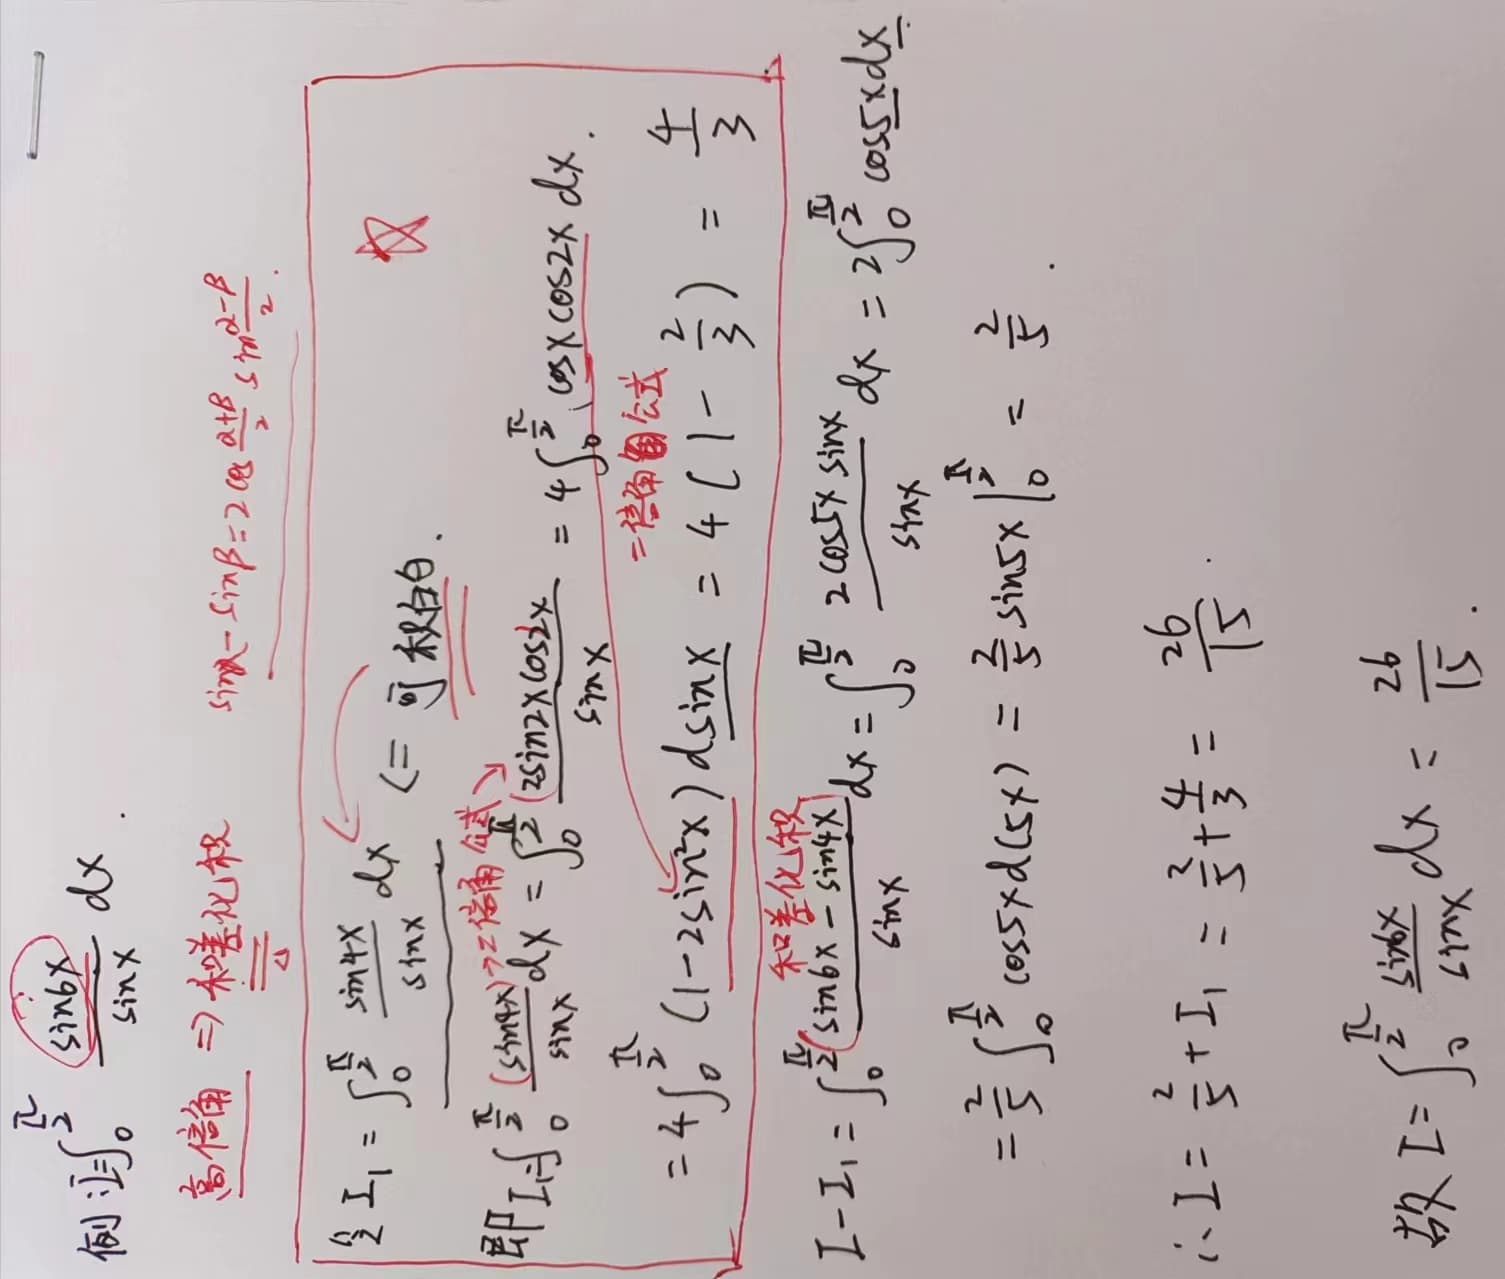 例:I=∫₀^{π/2} sin6x/sinx dx.
高倍角 ⇒ 和差化积 sinα-sinβ=2cos (α+β)/2 sin (α-β)/2.
令 I₁ = ∫₀^{π/2} sin4x/sinx dx <= 可积的.
(sin4x)→二倍角公式↘
即I₁=∫₀^{π/2} sin4x/sinx dx = ∫₀^{π/2} 2sin2xcos2x/sinx = 4∫₀^{π/2} cosxcos2x dx.
=倍角公式
= 4∫₀^{π/2} (1-2sin²x) dsinx = 4(1-2/3) = 4/3
和差化积
I-I₁ = ∫₀^{π/2} (sin6x-sin4x)/sinx dx = ∫₀^{π/2} 2cos5x sinx/sinx dx = 2∫₀^{π/2} cos5xdx.
= 2/5 ∫₀^{π/2} cos5xd(5x) = 2/5 sin5x |₀^{π/2} = 2/5.
∴ I = 2/5 + I₁ = 2/5 + 4/3 = 26/15.
故 I = ∫₀^{π/2} sin6x/sinx dx = 26/15.